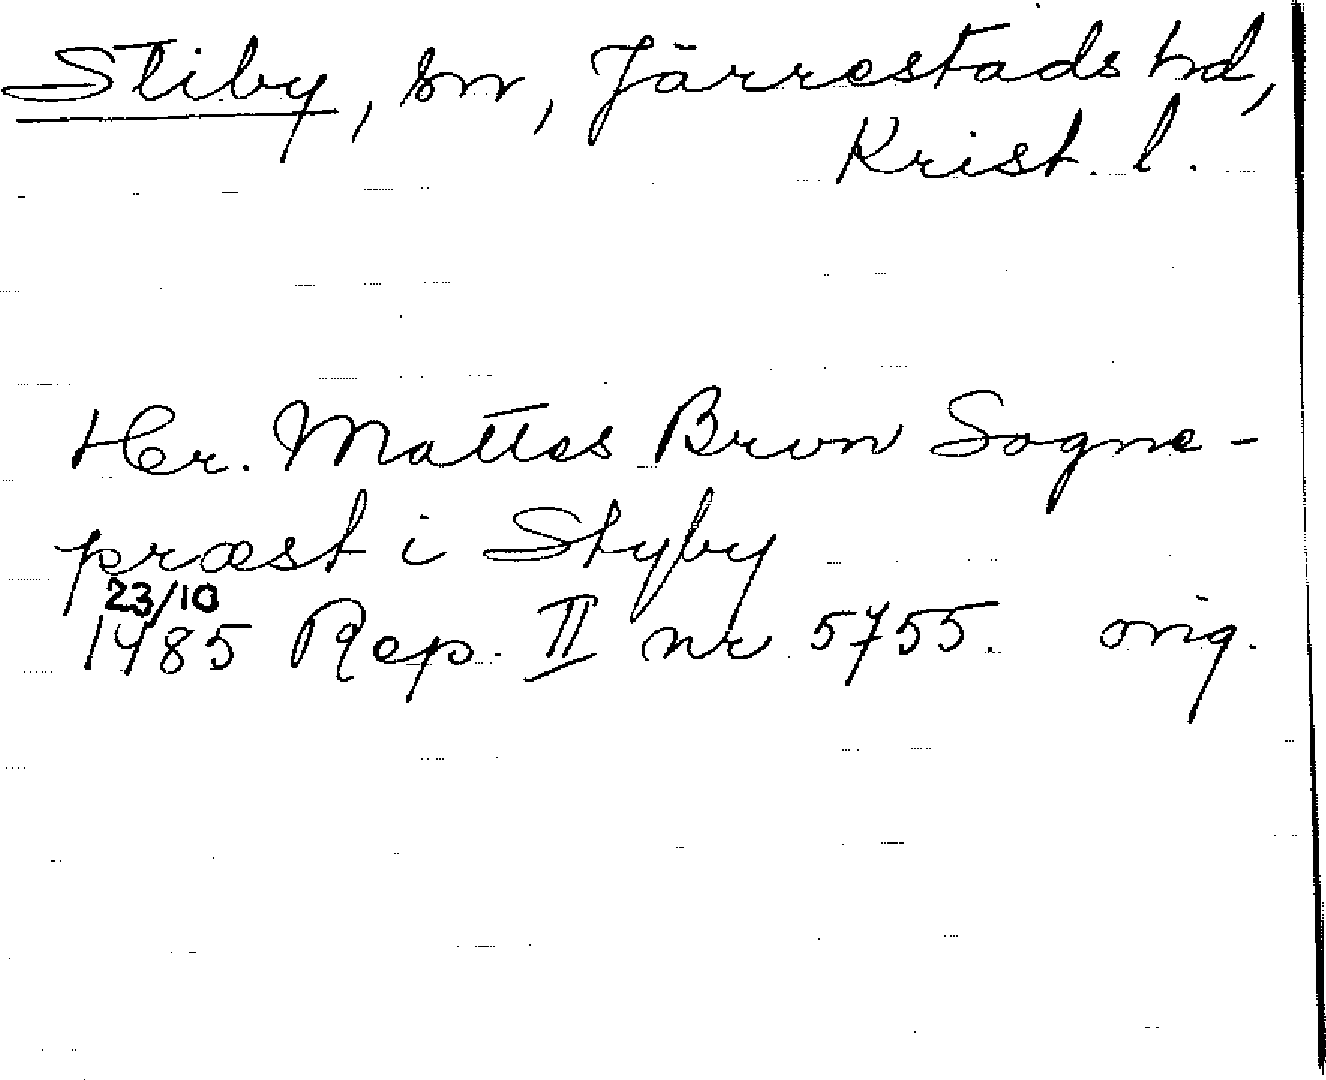 Stiby, sn, Järrestads hd,
Krist. l.
Hr. Mattes Brun Sogne-
præst i Styby
23/10
1485 Rep. II nr 5755. orig.